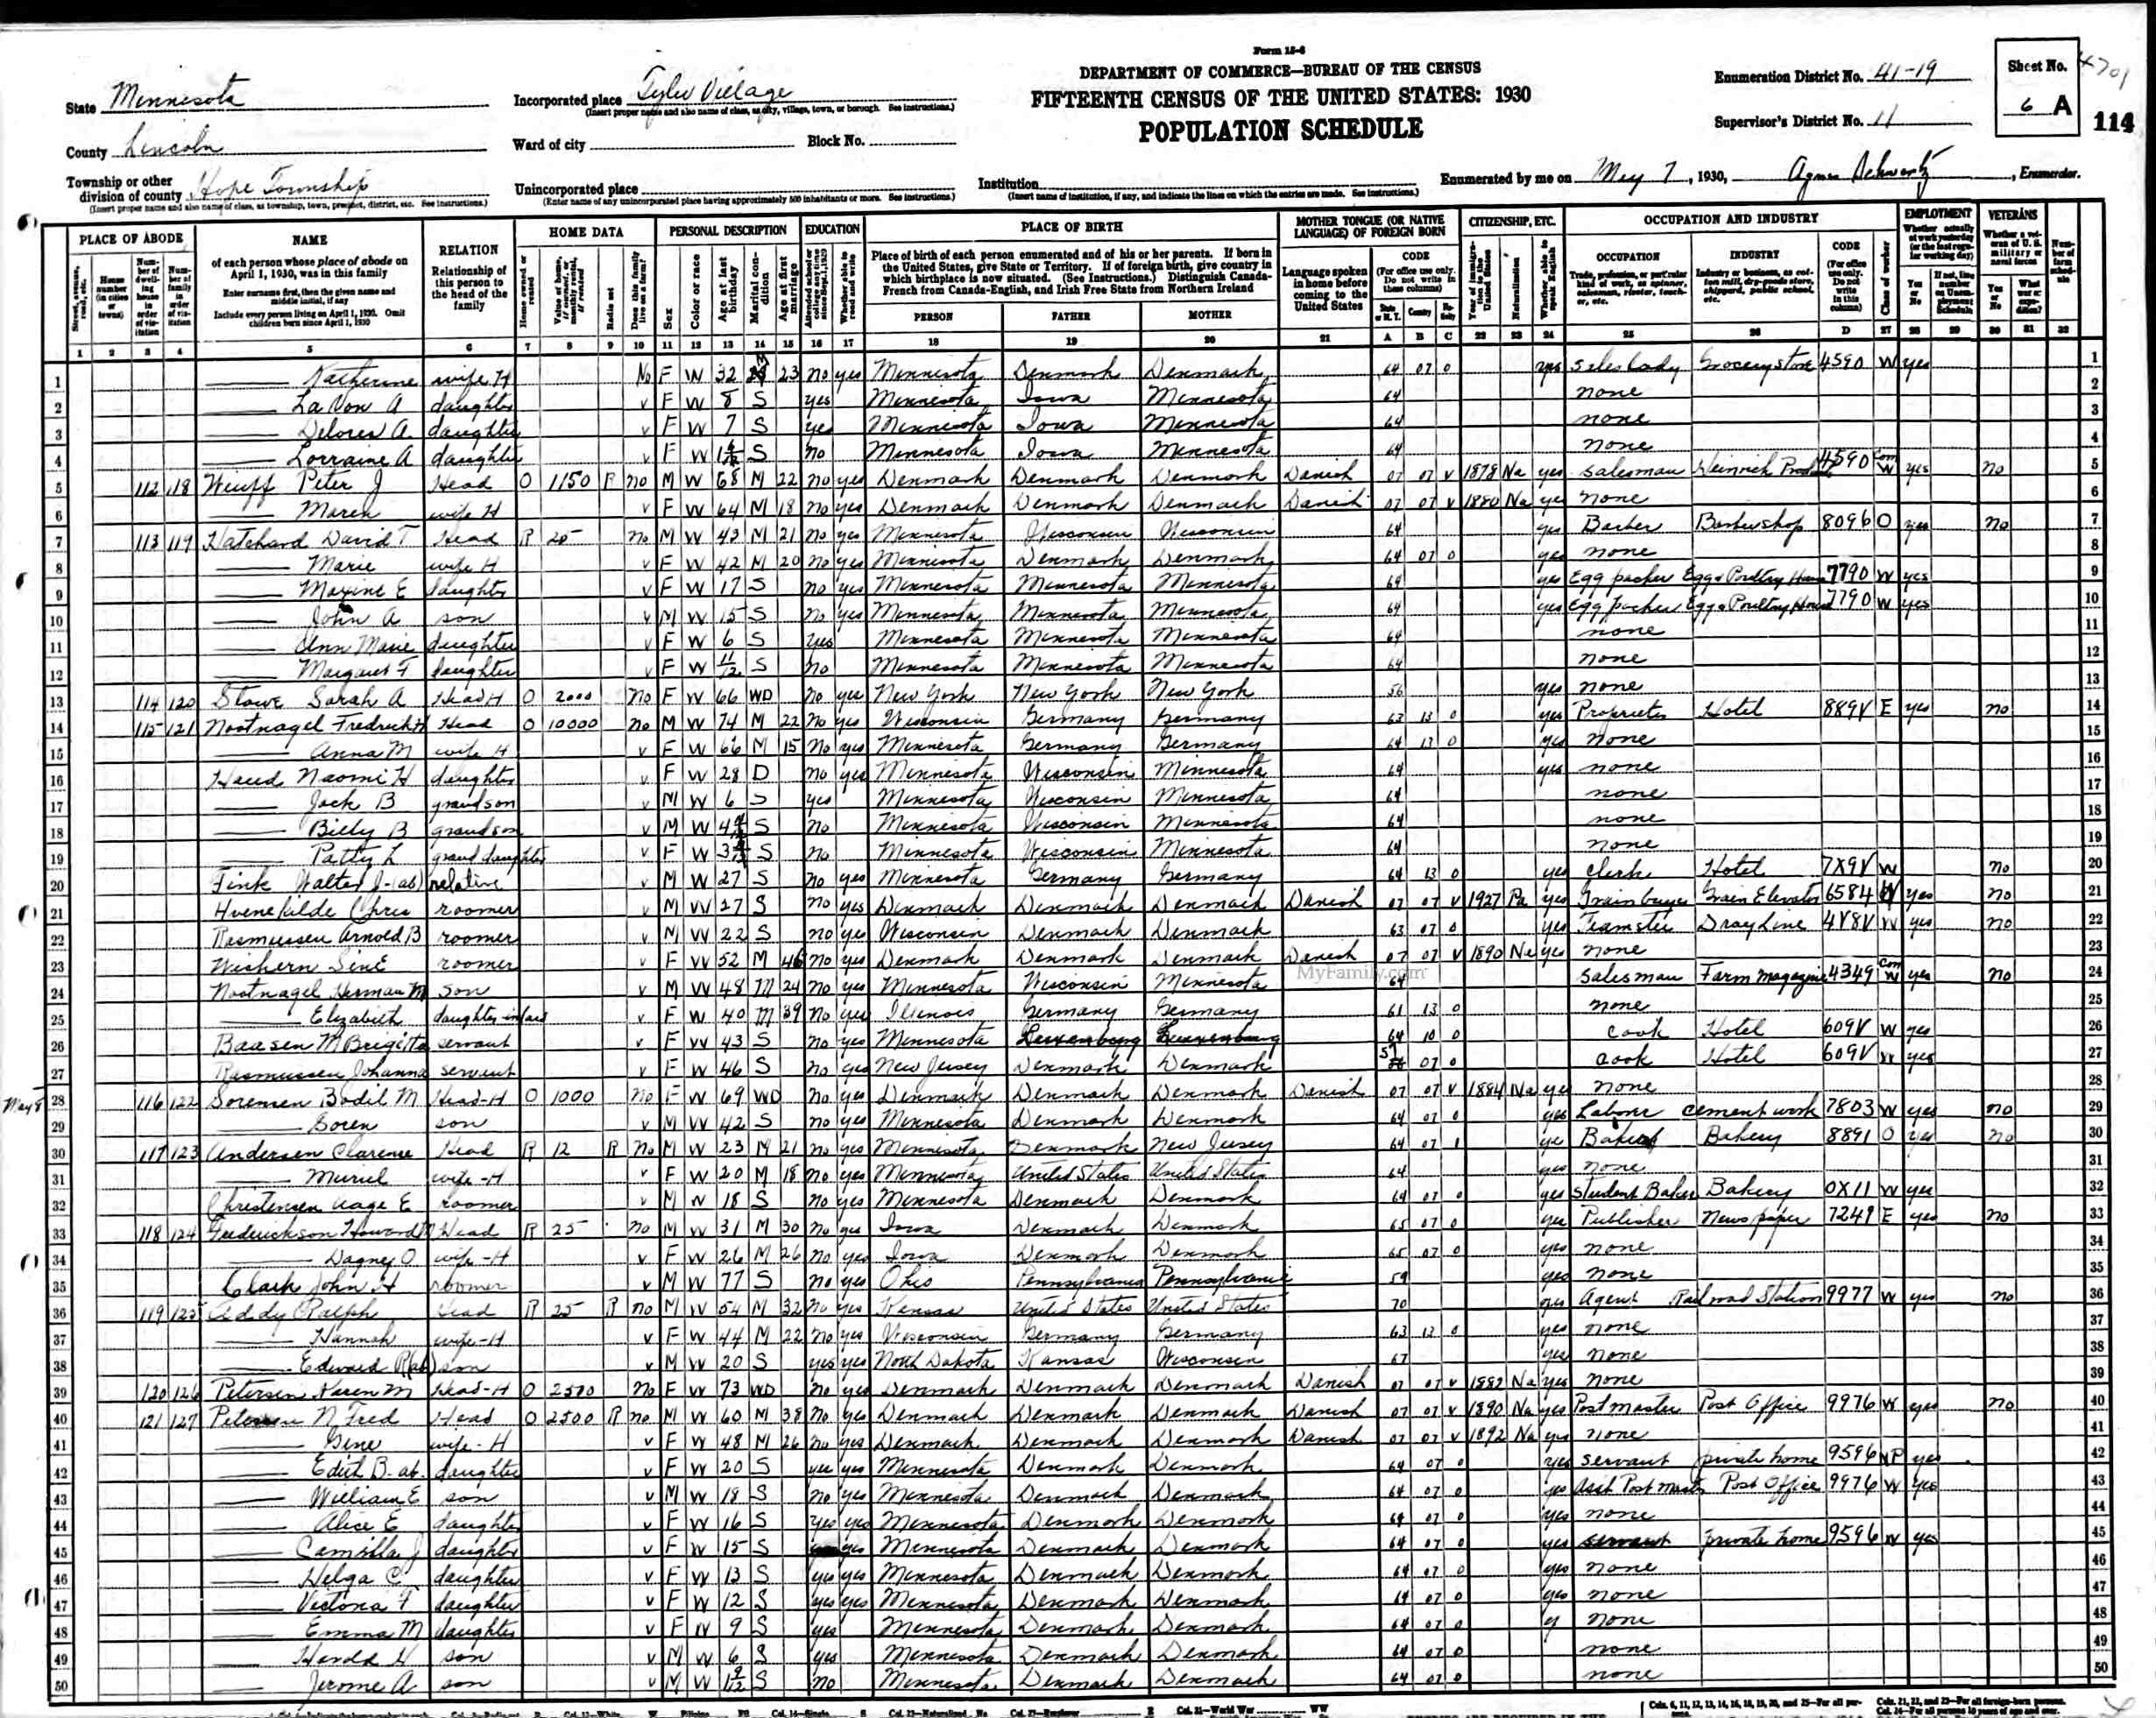 Form 15-6
DEPARTMENT OF COMMERCE—BUREAU OF THE CENSUS
FIFTEENTH CENSUS OF THE UNITED STATES: 1930
POPULATION SCHEDULE
State Minnesota
County Lincoln
Township or other division of county Hope Township
(Insert proper name and also name of class, as township, town, precinct, district, etc. See instructions.)
Incorporated place Tyler Village
(Insert proper name and also name of class, as city, village, town, or borough. See instructions.)
Ward of city Block No.
Unincorporated place
(Enter name of any unincorporated place having approximately 500 inhabitants or more. See instructions.)
Institution
(Insert name of institution, if any, and indicate the lines on which the entries are made. See instructions.)
Enumeration District No. 41-19
Supervisor's District No. 11
Sheet No. 6 A
114
Enumerated by me on May 7, 1930, Agnes Schwartz, Enumerator.
PLACE OF ABODE NAME RELATION HOME DATA PERSONAL DESCRIPTION EDUCATION PLACE OF BIRTH MOTHER TONGUE (OR NATIVE LANGUAGE) OF FOREIGN BORN CITIZENSHIP, ETC. OCCUPATION AND INDUSTRY EMPLOYMENT VETERANS
of each person whose place of abode on April 1, 1930, was in this family
Enter surname first, then the given name and middle initial, if any
Include every person living on April 1, 1930. Omit children born since April 1, 1930
Relationship of this person to the head of the family
Place of birth of each person enumerated and of his or her parents. If born in the United States, give State or Territory. If of foreign birth, give country in which birthplace is now situated. (See Instructions.) Distinguish Canada-French from Canada-English, and Irish Free State from Northern Ireland
PERSON FATHER MOTHER
Language spoken in home before coming to the United States
CODE (For office use only. Do not write in these columns)
OCCUPATION INDUSTRY CODE
1 Katherine wife H No F W 32 M 23 no yes Minnesota Denmark Denmark 64 07 0 yes Sales lady Grocery store 4590 W yes
2 LaVon A daughter v F W 8 S yes Minnesota Iowa Minnesota 64 none
3 Delores A. daughter v F W 7 S yes Minnesota Iowa Minnesota 64 none
4 Lorraine A daughter v F W S no Minnesota Iowa Minnesota 64 none
5 112 118 Wuff Peter J Head O 1150 R no M W 68 M 22 no yes Denmark Denmark Denmark Danish 07 07 V 1878 Na yes salesman 4590 W yes no
6 Maren wife H v F W 64 M 18 no yes Denmark Denmark Denmark Danish 07 07 V 1880 Na yes none
7 113 119 Hatchard David T Head R 25 no M W 43 M 21 no yes Minnesota Wisconsin Wisconsin 64 yes Barber Barbershop 8096 O yes no
8 Marie wife H v F W 42 M 20 no yes Minnesota Denmark Denmark 64 07 0 yes none
9 Maxine E daughter v F W 17 S no yes Minnesota Minnesota Minnesota 64 yes Egg packer Egg & Poultry House 7790 W yes
10 John A son v M W 15 S no yes Minnesota Minnesota Minnesota 64 yes egg packer Egg & Poultry House 7790 W yes
11 Ann Marie daughter v F W 6 S yes Minnesota Minnesota Minnesota 64 none
12 Margaret F daughter v F W 11/12 S no Minnesota Minnesota Minnesota 64 none
13 114 120 Stowe Sarah A Head H O 2000 no F W 66 WD no yes New York New York New York 56 yes none
14 115 121 Nootnagel Fredrick H Head O 10000 no M W 74 M 22 no yes Wisconsin Germany Germany 63 13 0 yes Proprietor Hotel 889V E yes no
15 Anna M wife H v F W 66 M 15 no yes Minnesota Germany Germany 64 13 0 yes none
16 Naomi H daughter v F W 28 D no yes Minnesota Wisconsin Minnesota 64 yes none
17 Jack B grandson v M W 6 S yes Minnesota Wisconsin Minnesota 64 none
18 Billy B grandson v M W S no Minnesota Wisconsin Minnesota 64 none
19 Patty L grand daughter v F W S no Minnesota Wisconsin Minnesota 64 none
20 Fink Walter J-(ab) relative v M W 27 S no yes Minnesota Germany Germany 64 13 0 yes clerk Hotel 7X9V W no
21 Chris roomer v M W 27 S no yes Denmark Denmark Denmark Danish 07 07 V 1927 Pa yes Grain buyer Grain Elevator 6584 W yes no
22 Rasmussen Arnold B roomer v M W 22 S no yes Wisconsin Denmark Denmark 63 07 0 yes Teamster Dray Line 4V8V W yes no
23 Wichern Sine roomer v F W 52 M 46 no yes Denmark Denmark Denmark Danish 07 07 V 1890 Na yes none
24 Nootnagel Herman M son v M W 48 M 24 no yes Minnesota Wisconsin Minnesota 64 salesman Farm magazine 4349 W yes no
MyFamily.com
25 Elizabeth daughter in law v F W 40 M 39 no yes Illinois Germany Germany 61 13 0 none
26 Baasen M Brigitta servant v F W 43 S no yes Minnesota Luxemburg Luxemburg 64 10 0 cook Hotel 609V W yes
27 Rasmussen Johanna servant v F W 46 S no yes New Jersey Denmark Denmark 07 0 cook Hotel 609V W yes
May 8 28 116 122 Sorensen Bodil M Head-H O 1000 no F W 69 WD no yes Denmark Denmark Denmark Danish 07 07 V 1884 Na yes none
29 Soren son v M W 42 S no yes Minnesota Denmark Denmark 64 07 0 yes Labor cement work 7803 W yes no
30 117 123 Andersen Clarence Head R 12 R no M W 23 M 21 no yes Minnesota Denmark New Jersey 64 07 1 ye Baker Bakery 8891 O yes no
31 Muriel wife-H v F W 20 M 18 no yes Minnesota United States United States 64 yes none
32 Christensen Aage E roomer v M W 18 S no yes Minnesota Denmark Denmark 64 07 0 yes student Baker Bakery 0X11 W yes
33 118 124 Frederickson Howard M Head R 25 no M W 31 M 30 no yes Iowa Denmark Denmark 65 07 0 yes Publisher Newspaper 7249 E yes no
34 Dagney O wife-H v F W 26 M 26 no yes Iowa Denmark Denmark 65 07 0 yes none
35 Clark John H roomer v M W 77 S no yes Ohio Pennsylvania Pennsylvania 59 yes none
36 119 125 Eddy Ralph Head R 25 R no M W 54 M 32 no yes Kansas United States United States 70 yes Agent Railroad Station 9977 W yes no
37 Hannah wife-H v F W 44 M 22 no yes Wisconsin Germany Germany 63 13 0 yes none
38 Edward R(ab) son v M W 20 S yes yes North Dakota Kansas Wisconsin 67 yes none
39 120 126 Petersen Karen M Head-H O 2500 no F W 73 WD no yes Denmark Denmark Denmark Danish 07 07 V 1882 Na yes none
40 121 127 Petersen N Fred Head O 2500 R no M W 60 M 38 no yes Denmark Denmark Denmark Danish 07 07 V 1890 Na yes Post master Post Office 9976 W yes no
41 Sine wife-H v F W 48 M 26 no yes Denmark Denmark Denmark Danish 07 07 V 1892 Na yes none
42 Edith B-ab. daughter v F W 20 S yes yes Minnesota Denmark Denmark 64 07 0 yes servant private home 9596 yes
43 William E son v M W 18 S no yes Minnesota Denmark Denmark 64 07 0 yes Asst Post master Post Office 9976 W yes
44 Alice E daughter v F W 16 S yes yes Minnesota Denmark Denmark 64 07 0 yes none
45 Camilla J daughter v F W 15 S yes Minnesota Denmark Denmark 64 07 0 yes servant private home 9596 W yes
46 Helga C daughter v F W 13 S yes yes Minnesota Denmark Denmark 64 07 0 yes none
47 Victoria F daughter v F W 12 S yes yes Minnesota Denmark Denmark 64 07 0 yes none
48 Emma M daughter v F W 9 S yes Minnesota Denmark Denmark 64 07 0 y none
49 Harold H son v M W 6 S yes Minnesota Denmark Denmark 64 07 0 none
50 Jerome A son v M W 1 9/12 S no Minnesota Denmark Denmark 64 07 0 none